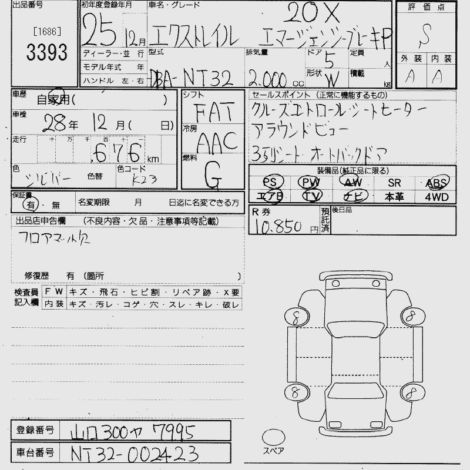 出品番号 初年度登録年月 車名・グレード 評価点
[1686] 3393 25年12月 エクストレイル 20X エマージェンシーブレーキP S
ディーラー・並行 型式 排気量 ドア 定員
モデル年式 年 DBA-NT32 2,000cc 5 形状 W 積載 kg 外装 内装
ハンドル 左・右 A A
車歴 自家用( ) シフト FAT セールスポイント(正常に機能するもの)
車検 28年 12月( 日) 冷房 AAC クルーズコントロール・シートヒーター
走行 十万 万 千 百 十 一 676 km 燃料 G アラウンドビュー
色 シルバー 色替 色コード K23 3列シート・オートバックドア
装備品(純正品に限る)
PS PW AW SR ABS
エアB TV ナビ 本革 4WD
保証書 有・無 名変期限 月 日迄に名変できる方 R券 10,850円 預託済 後日品
出品店申告欄 (不良内容・欠品・注意事項等記載)
フロアマット欠
修復歴 有(箇所 )
検査員記入欄 FW キズ・飛石・ヒビ割・リペア跡・X要
内装 キズ・汚レ・コゲ・穴・スレ・キレ・破レ
8 8
8 8
スペア
登録番号 山口300ヤ7995
車台番号 NT32-002423